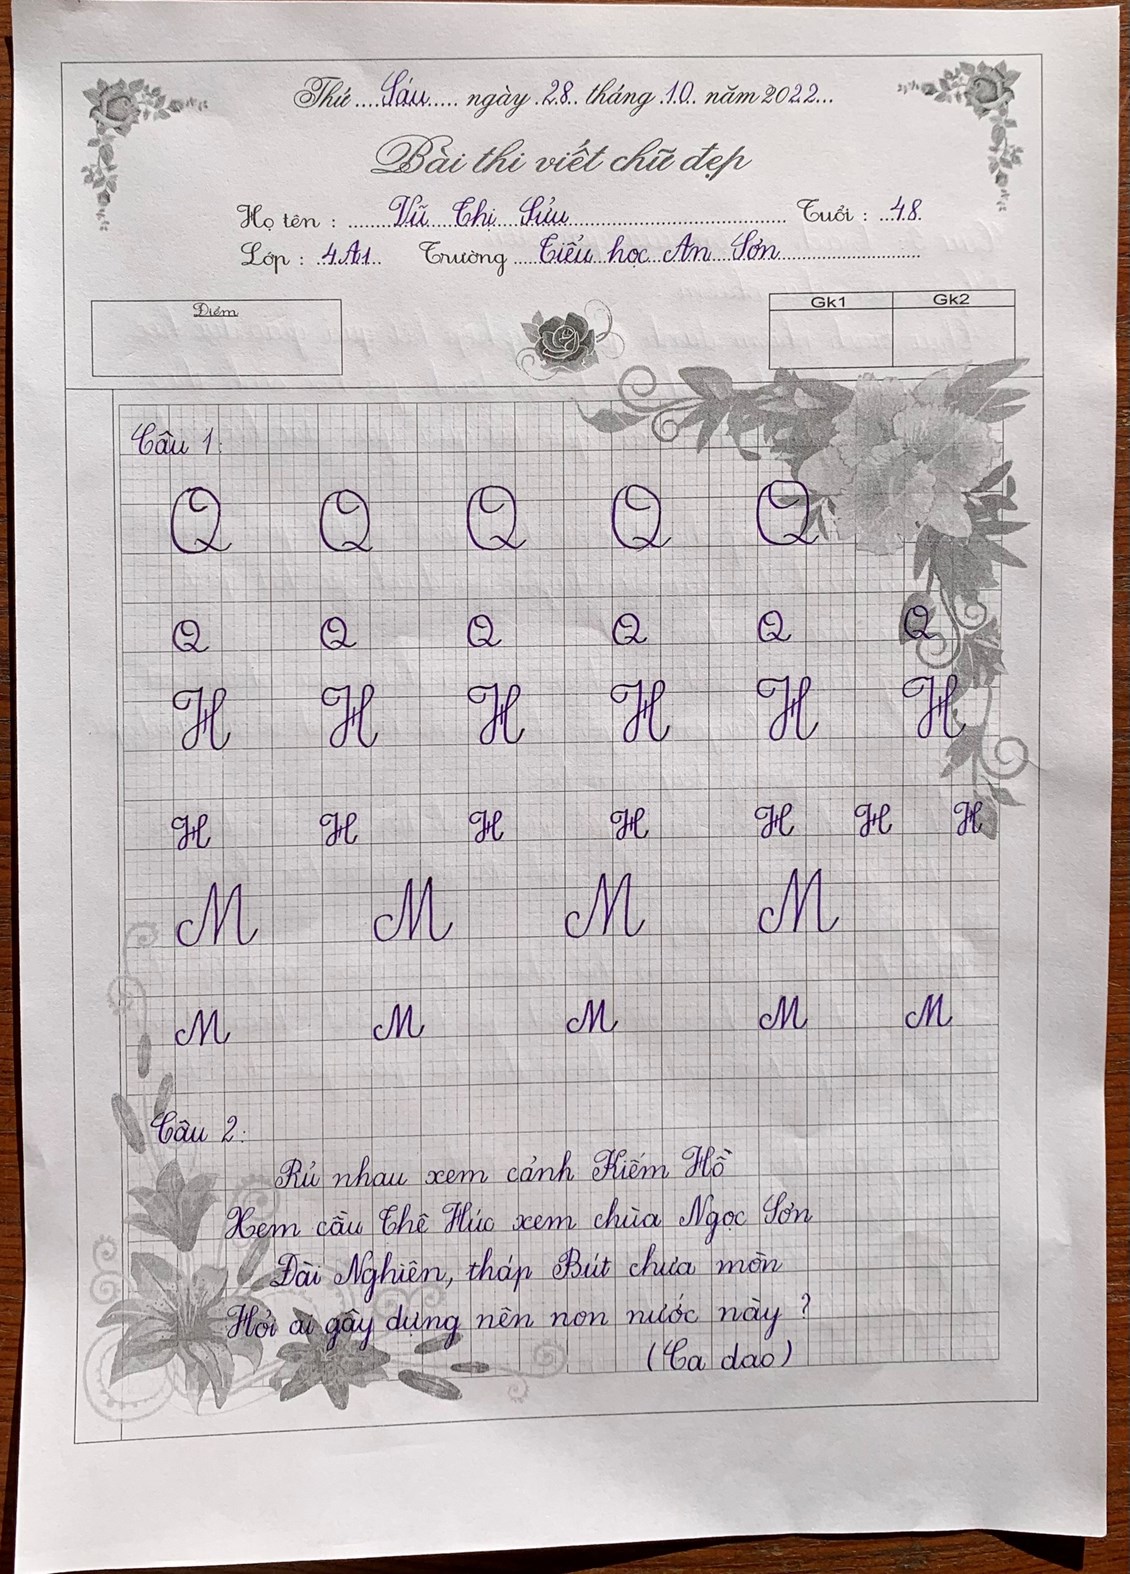 Thứ....Sáu..... ngày .28.. tháng .10.. năm 2022...
Bài thi viết chữ đẹp
Họ tên : ........Vũ Thị Sửu........ Tuổi : ..48.
Lớp : .4A1.. Trường ....Tiểu học An Sơn........
Điểm
Gk1 Gk2
Câu 1:
Q Q Q Q Q
Q Q Q Q Q Q
H H H H H H
H H H H H H H
M M M M
M M M M M
Câu 2:
Rủ nhau xem cảnh Kiếm Hồ
Xem cầu Thê Húc xem chùa Ngọc Sơn
Đài Nghiên, tháp Bút chưa mòn
Hỏi ai gây dựng nên non nước này ?
(Ca dao)